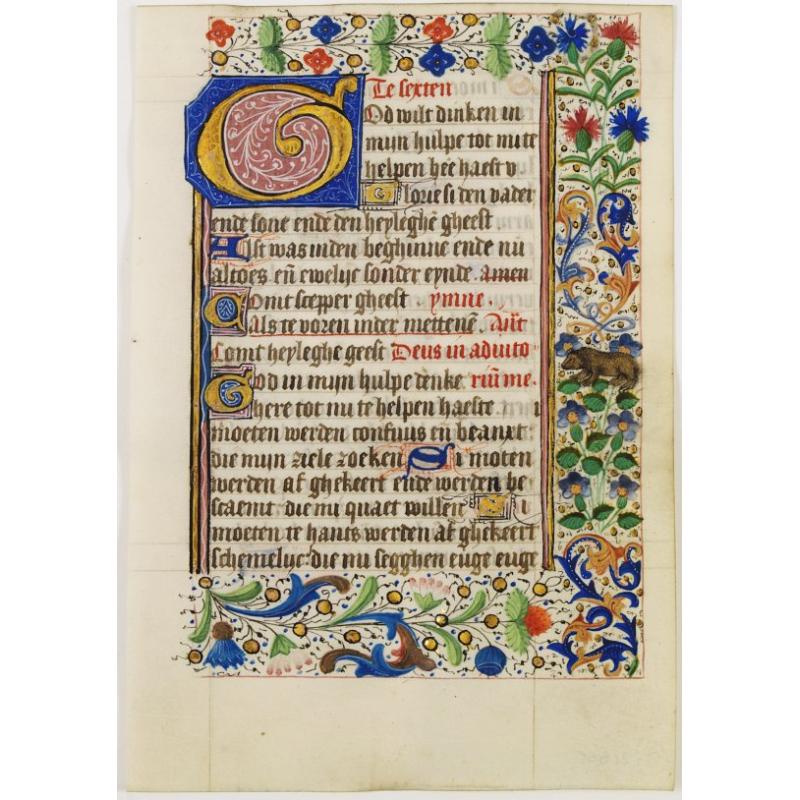 Te sexten
God wilt dinken in
mijn hulpe tot mi te
helpen heē haest v
Glorie si den vader
ende sone ende den heyleghē gheest
Alst was inden beghinne ende nū
altoes eñ ewelijc sonder eynde. amen
Comt scepper gheest. ymne.
Als te voren inder mettenē. Añt
Comt heyleghe geest Deus in adiuto
God in mijn hulpe denke. riū me.
here tot mi te helpen haeste
moeten werden confuus eñ beanxt:
die mijn ziele zoeken Si moten
werden af ghekeert ende werden be
scaemt: die mi quaet willen Si
moeten te hants werden af ghekeert
schemelijc: die mi segghen euge euge